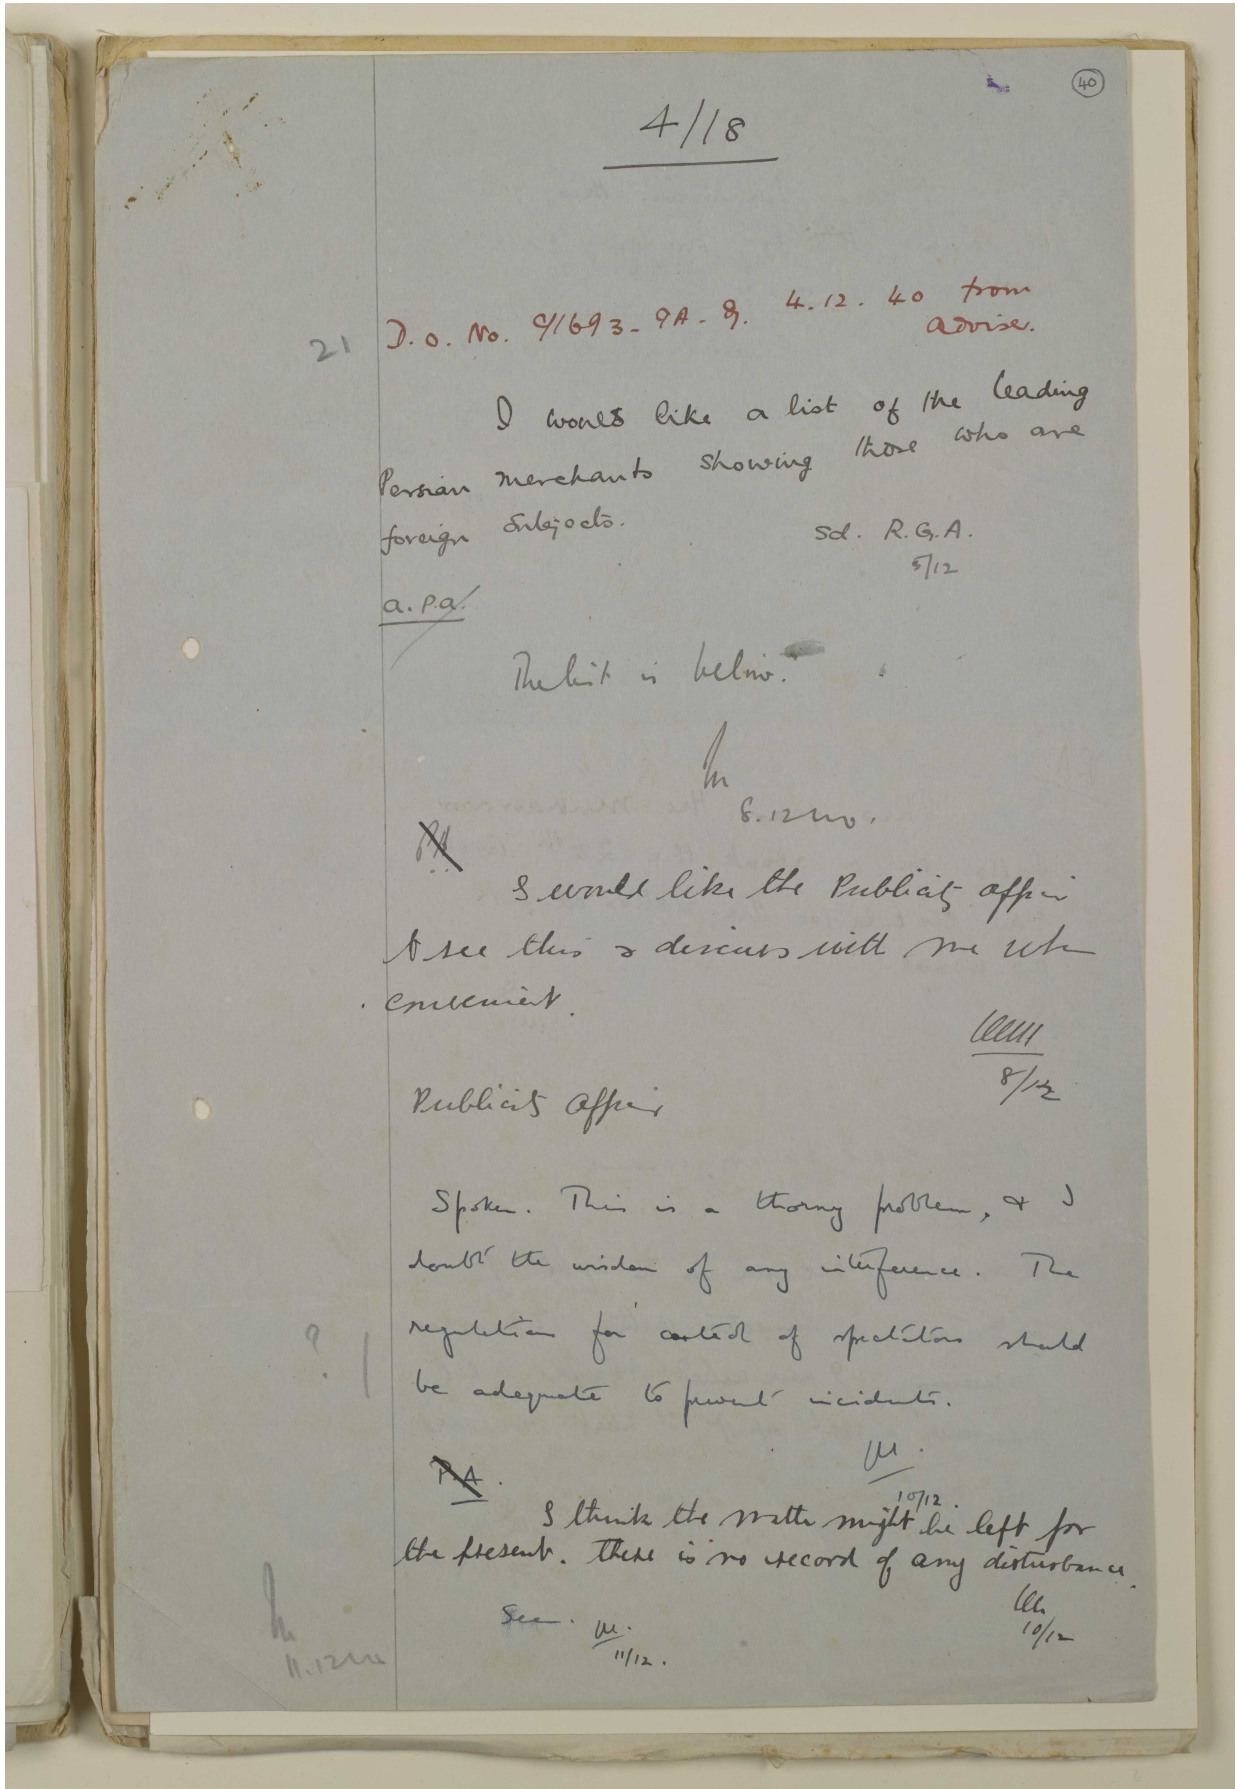 40
4/18
21
D.O. No. C/693-9A-9. 4.12.40 from
adviser.
I would like a list of the leading
Persian merchants showing those who are
foreign subjects.
Sd. R.G.A.
5/12
a.P.a.
The list is below.
8.12.40.
PA
I would like the Publicity Officer
to see this & discuss with me when
convenient.
8/12
Publicity Officer
Spoken. This is a thorny problem, & I
doubt the wisdom of any interference. The
regulations for control of spectators should
? be adequate to prevent incidents.
10/12.
P.A.
I think the matter might be left for
the present. There is no record of any disturbance.
10/12
Seen.
11/12.
11.12.40